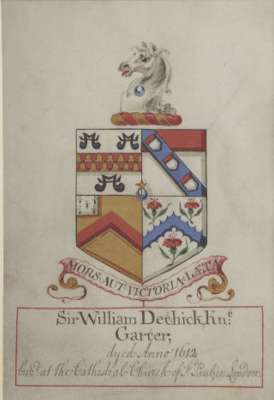 MORS·AUT·VICTORIA·LÆTA
Sir William Dethick Knᵗ
Garter,
dyed Anno 1612
burᵈ at the Cathedral Church of Sᵗ Pauls in London